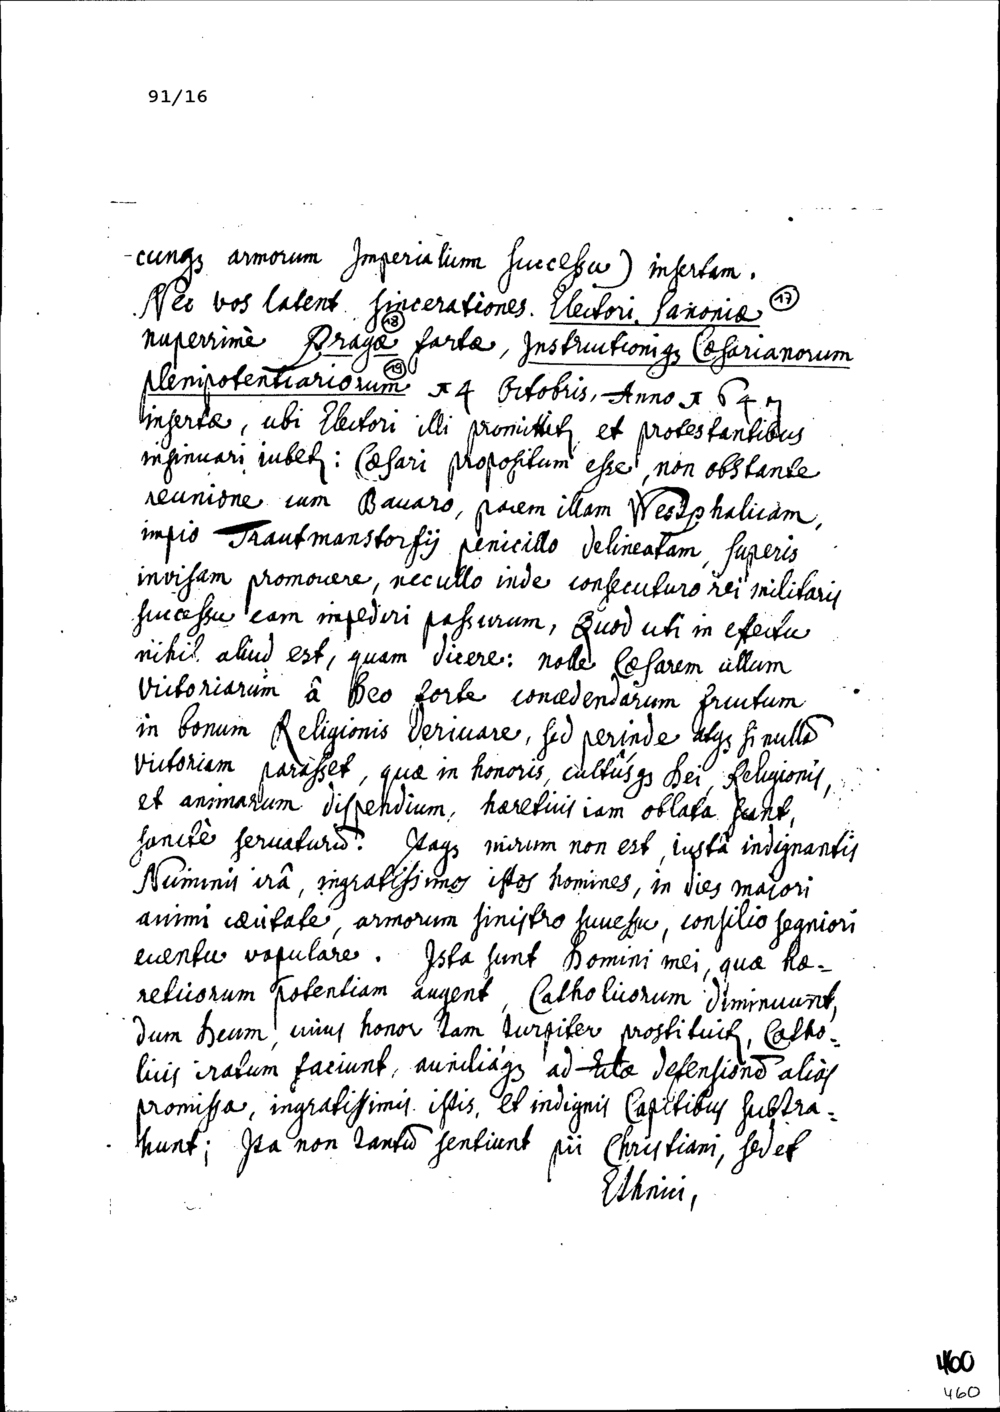 91/16
-cunqз armorum Imperialium successu) insertam.
Nec vos latent sincerationes Electori Saxoniæ (17)
nuperrimè Pragæ (18) factæ, Instructioniqз Cæsarianorum
plenipotentiariorum (19) 14 Octobris, Anno 1647
insertæ, ubi Electori illi promittitʒ et protestantibus
insinuari iubetʒ: Cæsari propositum esse, non obstante
reunione cum Bavaro, pacem illam Westphalicam,
impio Trautmanstorfij penicillo delineatam, superis
invisam promouere, nec ullo inde consecuturo rei militaris
successu eam impediri passurum, Quod uti in efectu
nihil aliud est, quam dicere: nolle Cæsarem ullum
victoriarum â Deo forte concedendarum fructum
in bonum Religionis deriuare, sed perinde atqз si nullā
victoriam parasset, quæ in honoris, cultûsqз Dei, Religionis,
et animarum dispendium, hæreticis iam oblata sunt,
sanctè seruaturū? Itaqз mirum non est, iustâ indignantis
Numinis irâ, ingratissimos istos homines, in dies maiori
animi cæcitate, armorum sinistro successu, consilio segniori
euentu vapulare. Ista sunt Domini mei, quæ hæ=
reticorum potentiam augent, Catholicorum diminuunt,
dum Deum, cuius honor tam turpiter prostituitʒ, Catho=
licis iratum faciunt, auxiliáqз ad defensionē aliàs
promissa, ingratissimis istis, et indignis Capitibus subtra=
hunt; Ita non tantū sentiunt pii Christiani, sed et
Ethnici,
460
460